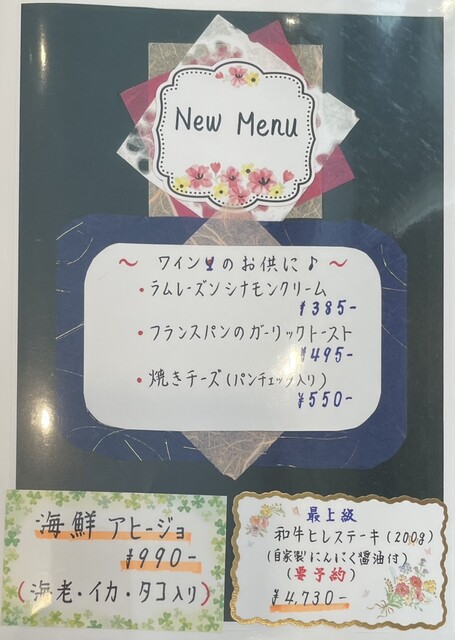 New Menu
～ ワインのお供に♪ ～
・ラムレーズンシナモンクリーム
¥385-
・フランスパンのガーリックトースト
¥495-
・焼きチーズ(パンチェッタ入り)
¥550-
海鮮アヒージョ
¥990-
(海老・イカ・タコ入り)
最上級
和牛ヒレステーキ(200g)
(自家製にんにく醤油付)
(要予約)
¥4,730-